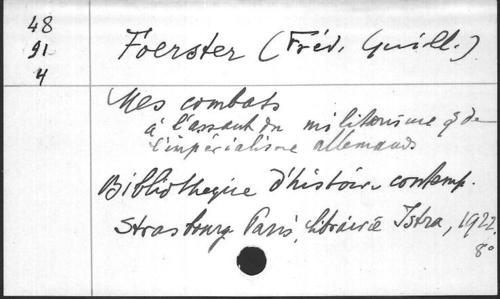 48
91
4
Foerster (Fréd. Guill.)
Mes combats
à l'assaut du militarisme & de
l'impérialisme allemands
Bibliothèque d'histoire contemp.
Strasbourg Paris, librairie Istra, 1922.
8°